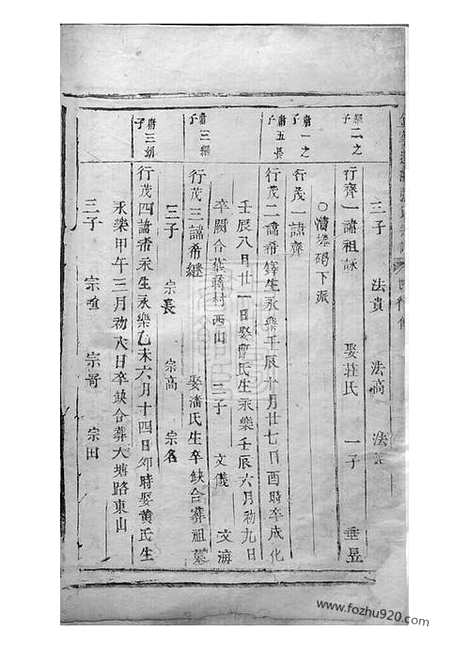 三子 法貴 法高 法
繼二之子
行齊一諱祖詠 娶莊氏 一子 垂昱
○濆塘碭下派
肅一之子
行茂一諱齊
肅五長子
行茂二諱希鐸生永樂壬辰十月廿七日酉時卒成化
壬辰八月廿一日娶廖氏生永樂壬辰六月初九日
卒闕合葬蔣村西山 二子 文儀 文海
肅三繼子
行茂三諱希繼 娶潘氏生卒缺合葬祖墓
三子 宗長 宗高 宗名
肅三幼子
行茂四諱希永生永樂乙未六月十四日卯時娶黃氏生
永樂甲午三月初六日卒缺合葬大塘路東山
三子 宗 宗哥 宗田
www.fozhu920.com